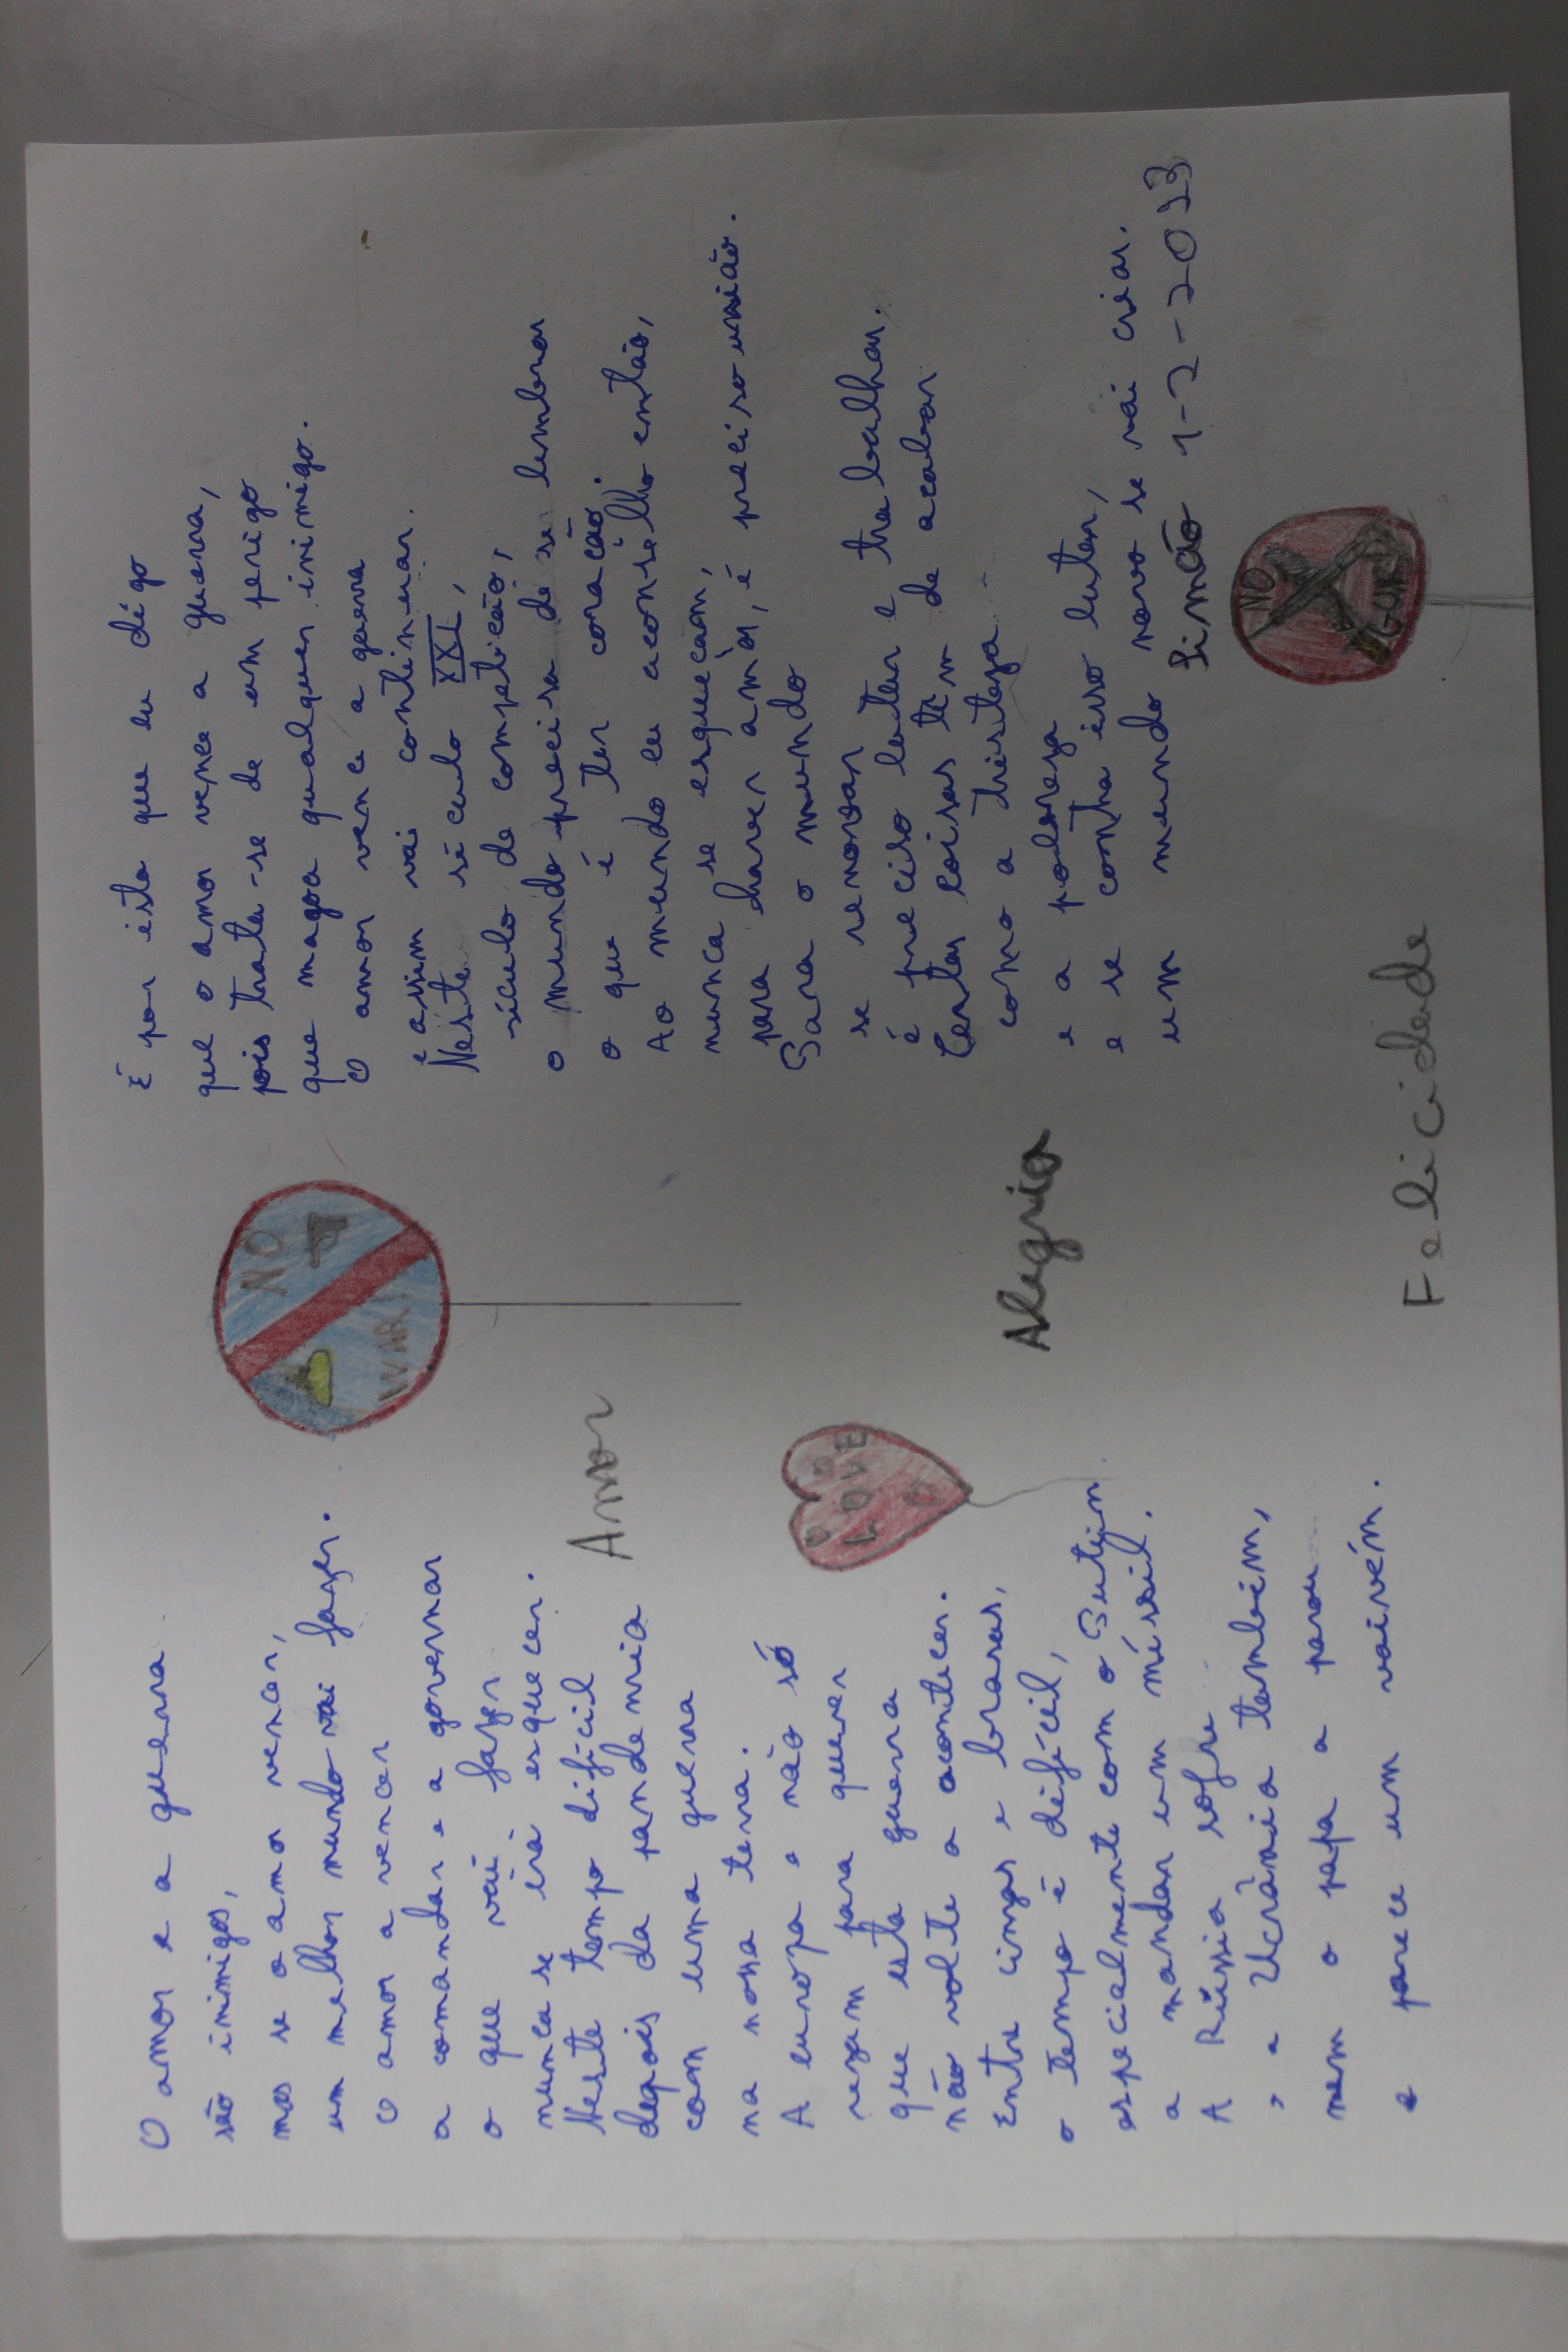 O amor e a guerra
são inimigos,
mas se o amor vencer,
um melhor mundo vai fazer.
O amor a vencer
a comandar e a governar
o que vai fazer
nunca se irá esquecer.
Neste tempo difícil
depois da pandemia
com uma guerra
na nossa terra.
A europa e não só
rezam para querer
que esta guerra
não volte a acontecer.
Entre cinzas e brasas,
o tempo é difícil,
especialmente com o Putin
a mandar um míssil.
A Rússia sofre
e a Ucrânia também,
nem o papa a parou
e parece um vaivém.
NO
WAR!
Amor
LOVE
Alegria
Felicidade
É por isto que eu digo
que o amor vence a guerra,
pois trata-se de um perigo
que magoa qualquer inimigo.
O amor vence a guerra
e assim vai continuar.
Neste século XXI,
século de competição,
o mundo precisa de se lembrar
o que é ter coração.
Ao mundo eu aconselho então,
nunca se esqueçam,
para haver amor, é preciso união.
Para o mundo
se renovar
é preciso lutar e trabalhar.
Certas coisas têm de acabar
como a tristeza
e a pobreza
e se contra isso lutar,
um mundo novo se vai criar.
Simão 1-2-2023
NO
GUN